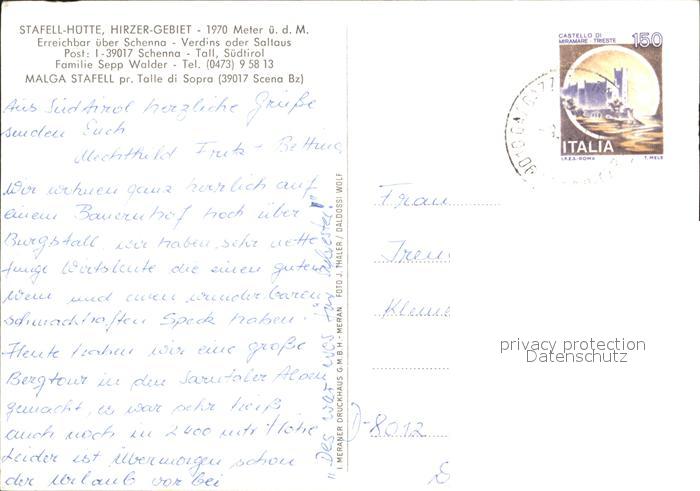 STAFELL-HÜTTE, HIRZER-GEBIET - 1970 Meter ü. d. M.
Erreichbar über Schenna - Verdins oder Saltaus
Post: I-39017 Schenna - Tall, Südtirol
Familie Sepp Walder - Tel. (0473) 9 58 13
MALGA STAFELL pr. Talle di Sopra (39017 Scena Bz)
Aus Südtirol herzliche Grüße
senden Euch
Mechthild Fritz + Bettina
Wir wohnen ganz herrlich auf
einem Bauernhof hoch über
Burgstall, wir haben sehr nette
junge Wirtsleute die einen guten
Wein und einen wunderbaren
schmackhaften Speck haben.
Heute haben wir eine große
Bergtour in den Sarntaler Alpen
gemacht, es war sehr heiß
auch noch in 2400 mtr Höhe
Leider ist übermorgen schon
der Urlaub vorbei
"Des war was für Silvester!"
I. MERANER DRUCKHAUS G.M.B.H. - MERAN FOTO J. THALER / DALDOSSI WOLF
CASTELLO DI
MIRAMARE - TRIESTE
150
ITALIA
I.P.Z.S.-ROMA T. MELE
Frau
Klem
privacy protection
Datenschutz
D-8012